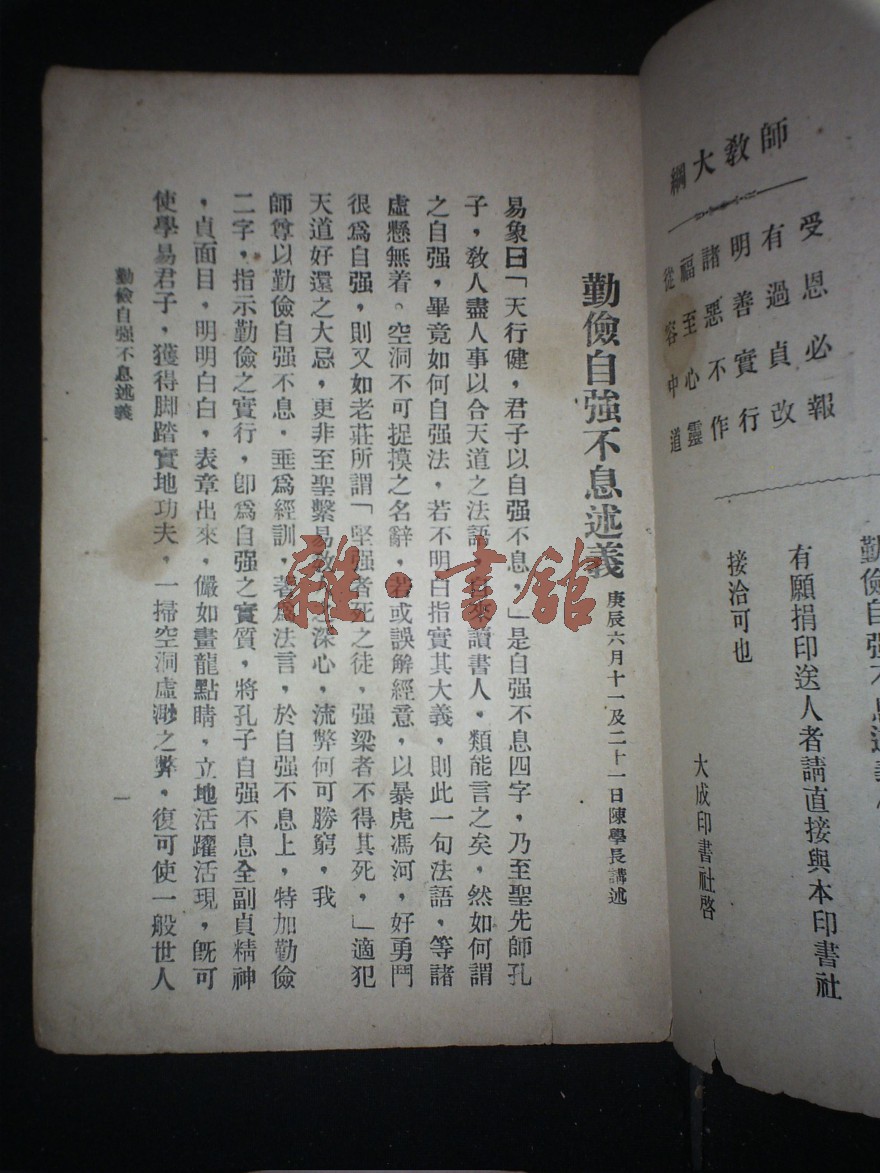 師教大綱
受恩必報
有過貞改
明善實行
諸惡不作
福至心靈
從容中道
勤儉自强不息述義
有願捐印送人者請直接與本印書社
接洽可也
大成印書社啓
勤儉自強不息述義 庚辰六月十一及二十一日陳學長講述
易象曰「天行健，君子以自强不息，」是自强不息四字，乃至聖先師孔
子，教人盡人事以合天道之法語，來讀書人，類能言之矣，然如何謂
之自强，畢竟如何自强法，若不明白指實其大義，則此一句法語，等諸
虛懸無着。空洞不可捉摸之名辭，若或誤解經意，以暴虎馮河，好勇鬥
很爲自强，則又如老莊所謂「堅强者死之徒，强梁者不得其死，」適犯
天道好還之大忌，更非至聖繫易教之深心，流弊何可勝窮，我
師尊以勤儉自强不息．垂爲經訓，著爲法言，於自强不息上，特加勤儉
二字，指示勤儉之實行，卽爲自强之實質，將孔子自强不息全副貞精神
，貞面目，明明白白，表章出來，儼如畫龍點睛，立地活躍活現，旣可
使學易君子，獲得脚踏實地功夫，一掃空洞虛渺之弊，復可使一般世人
勤儉自强不息述義
一
雜·書館